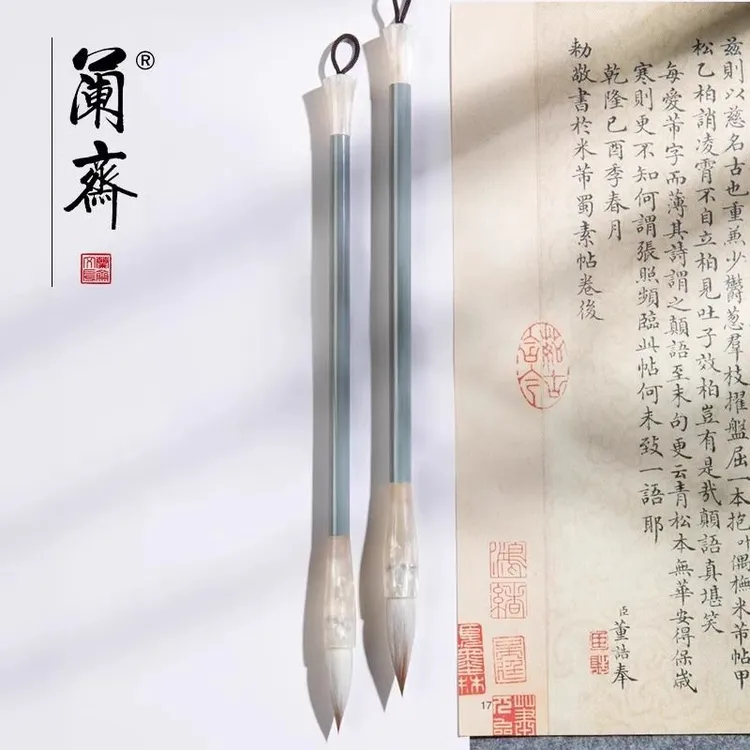 闌齋®
茲則以慈名古也重兼少鬱葱羣枝擢盤屈一本抱叶偶橅米芾帖甲
松乙柏誚凌霄不自立柏見吐子效柏豈有是哉顛語真堪笑
每愛芾字而薄其詩謂之顛語至末句更云青松本無華安得保歲
寒則更不知何謂張照頻臨此帖何未致一語耶
乾隆己酉季春月 臣董誥奉
勅敬書於米芾蜀素帖卷後
17